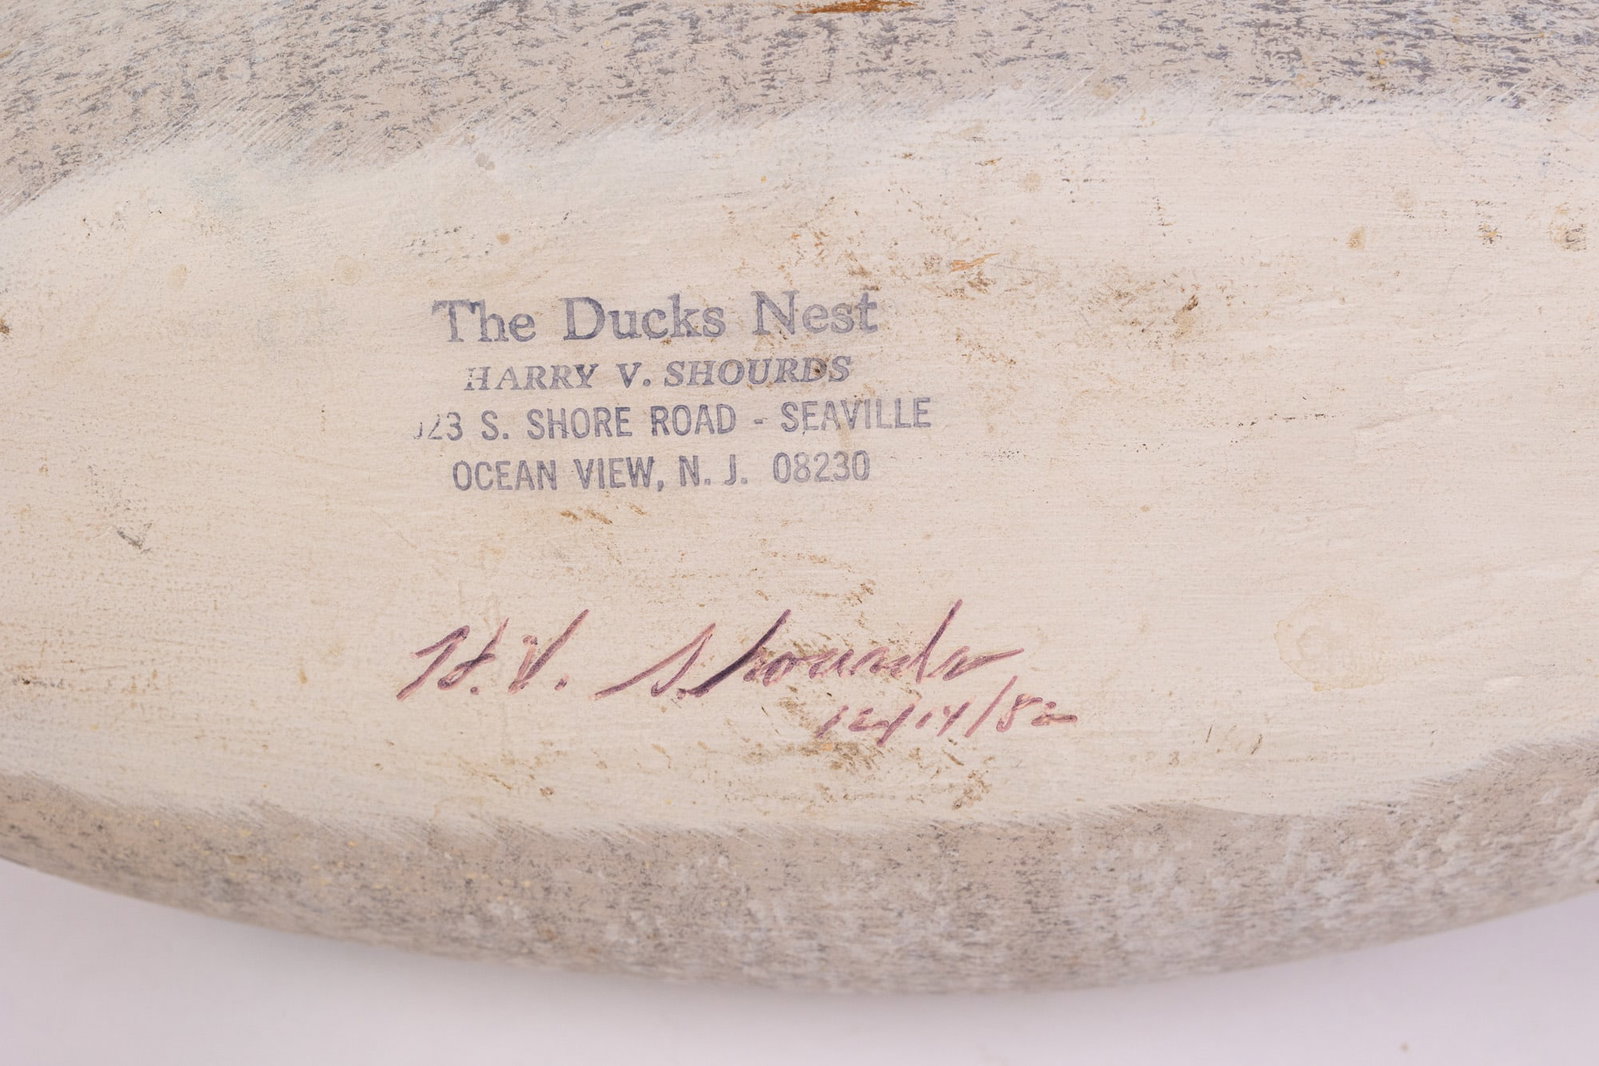 The Ducks Nest
HARRY V. SHOURDS
S. SHORE ROAD - SEAVILLE
OCEAN VIEW, N. J. 08230
H. V. Shourds
12/14/82